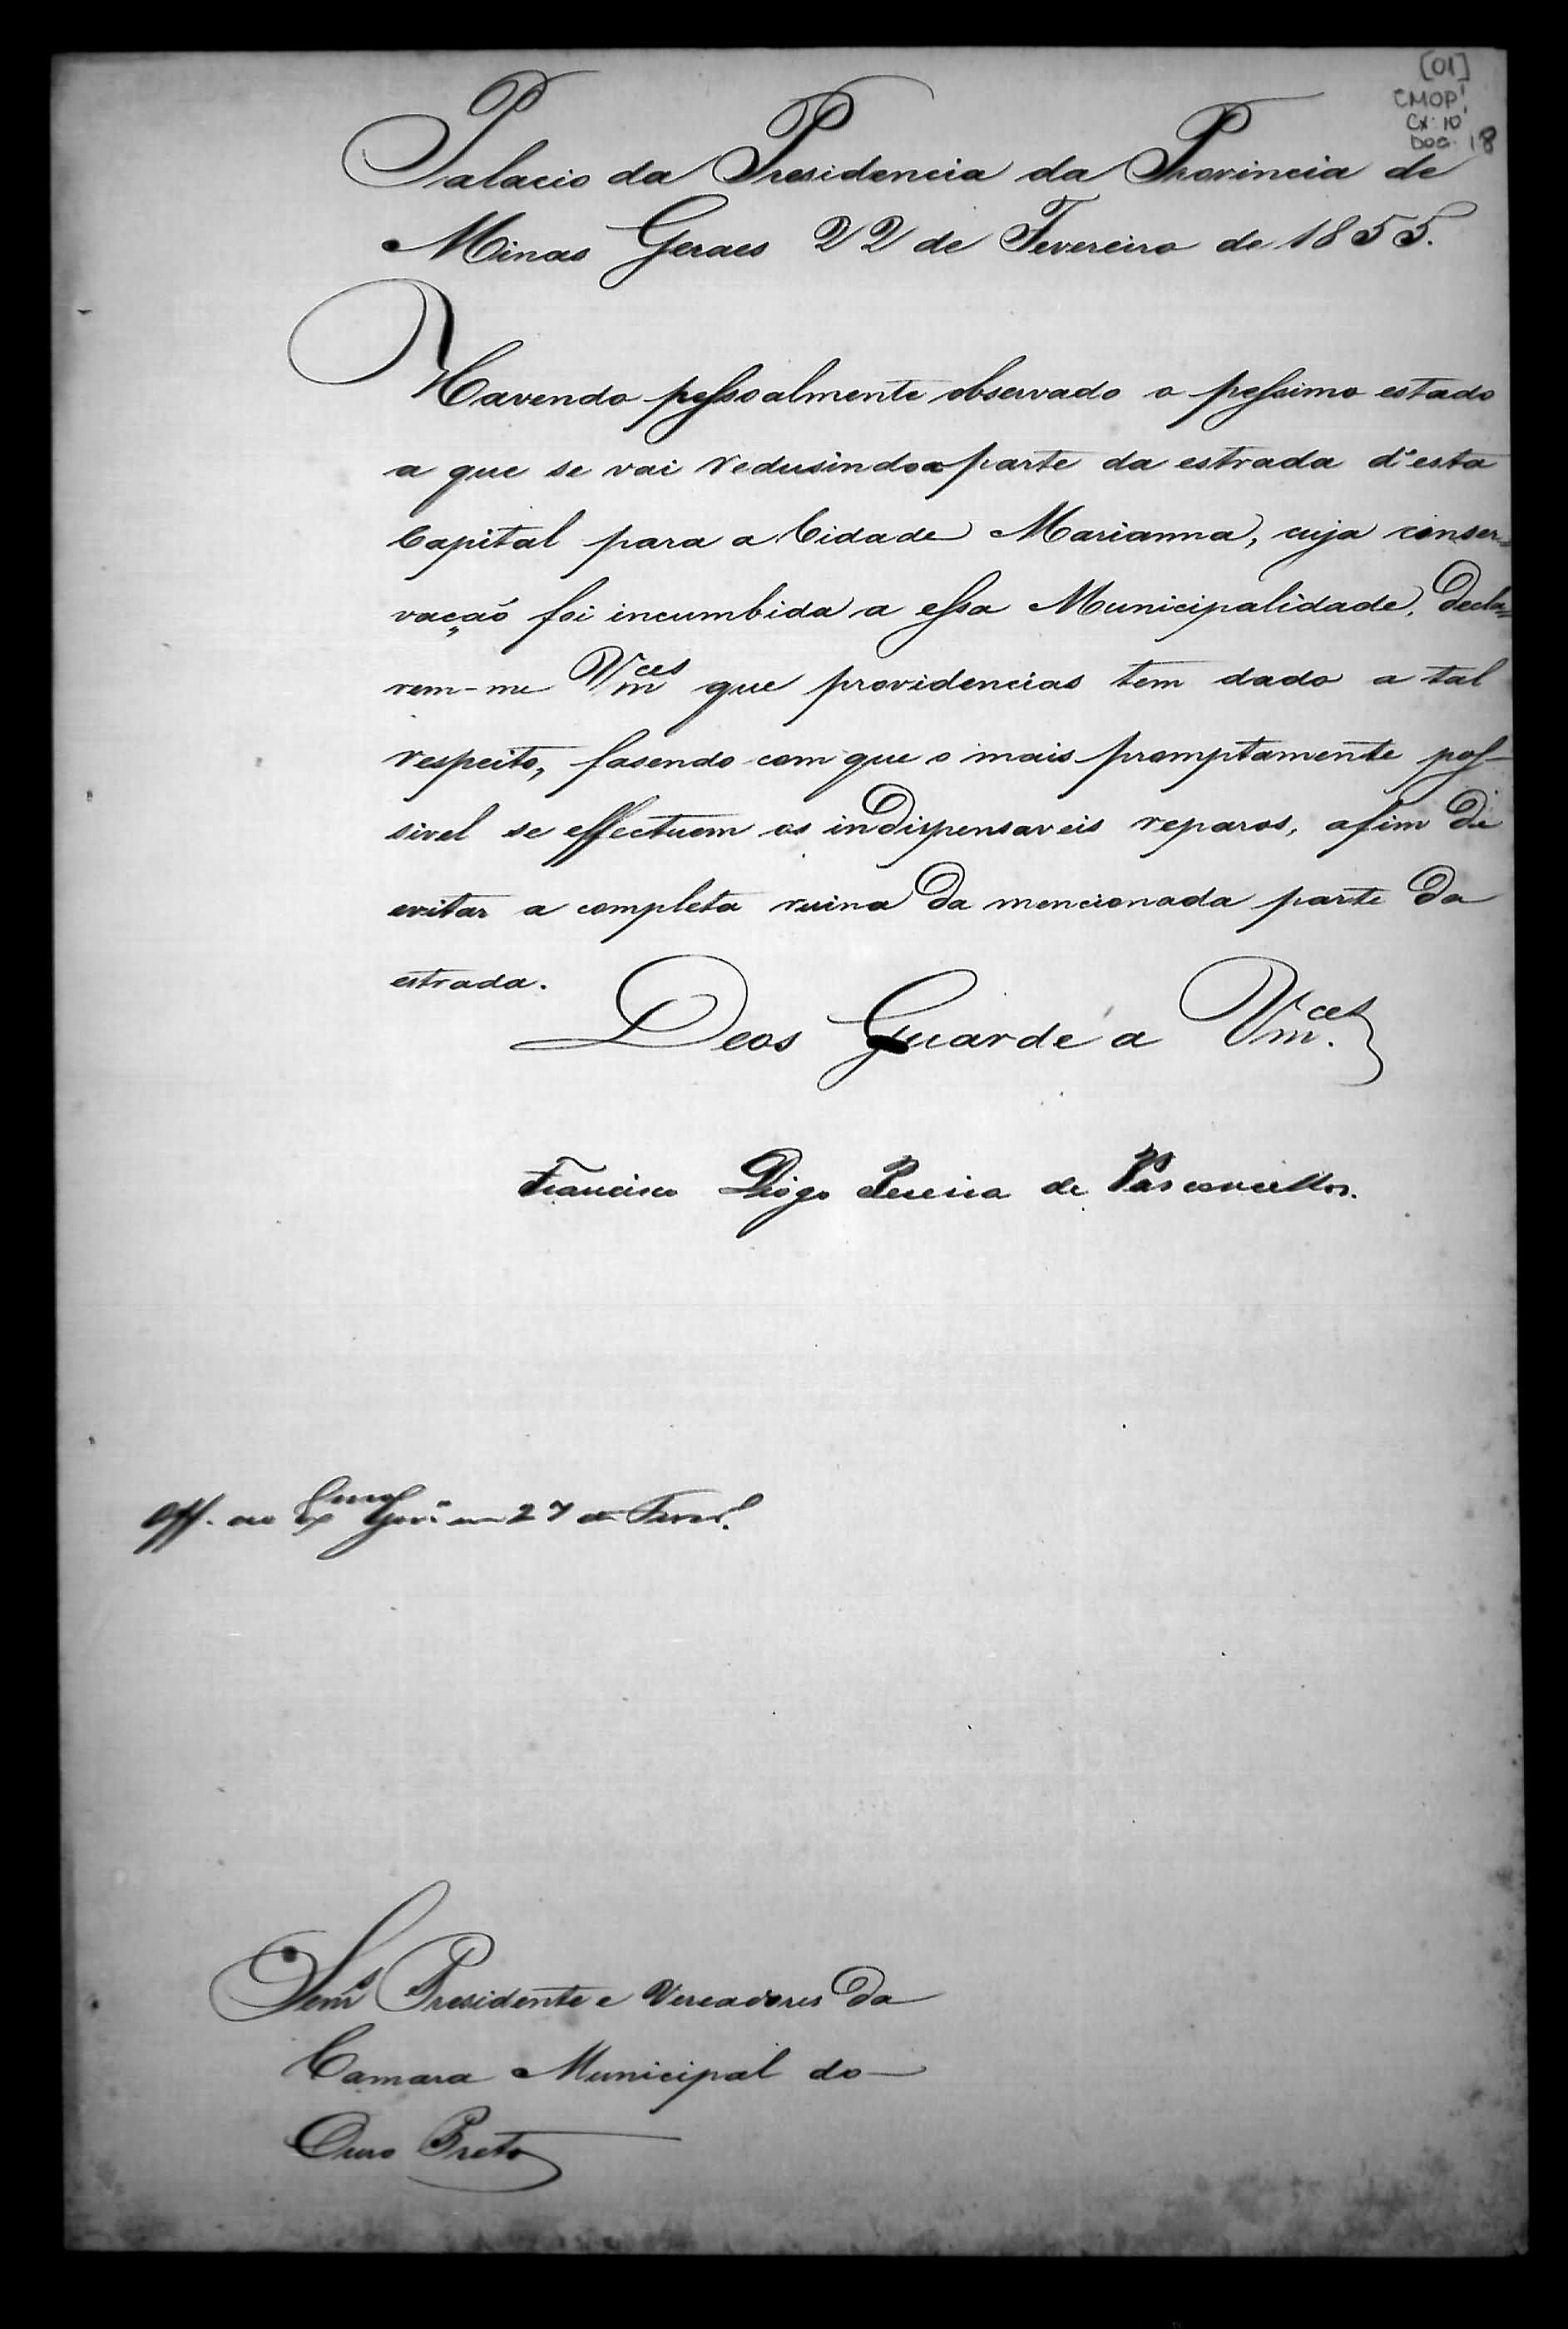 [01]
CMOP
Cx: 10
DOC: 18
Palacio da Presidencia da Provincia de
Minas Geraes 22 de Fevereiro de 1855.
Havendo pessoalmente observado o pessimo estado
a que se vai redusindo a parte da estrada d'esta
Capital para a Cidade Marianna, cuja conser=
vação foi incumbida a essa Municipalidade, decla=
rem-me Vm.ces que providencias tem dado a tal
respeito, fasendo com que o mais promptamente pos-
sivel se effectuem os indispensaveis reparos, afim de
evitar a completa ruina da mencionada parte da
estrada.
Deos Guarde a Vm.ces
Francisco Diogo Pereira de Vasconcellos.
Off. ao Ex.mo Gov.o em 27 de Fever.
Senrs Presidente e Vereadores da
Camara Municipal do
Ouro Preto